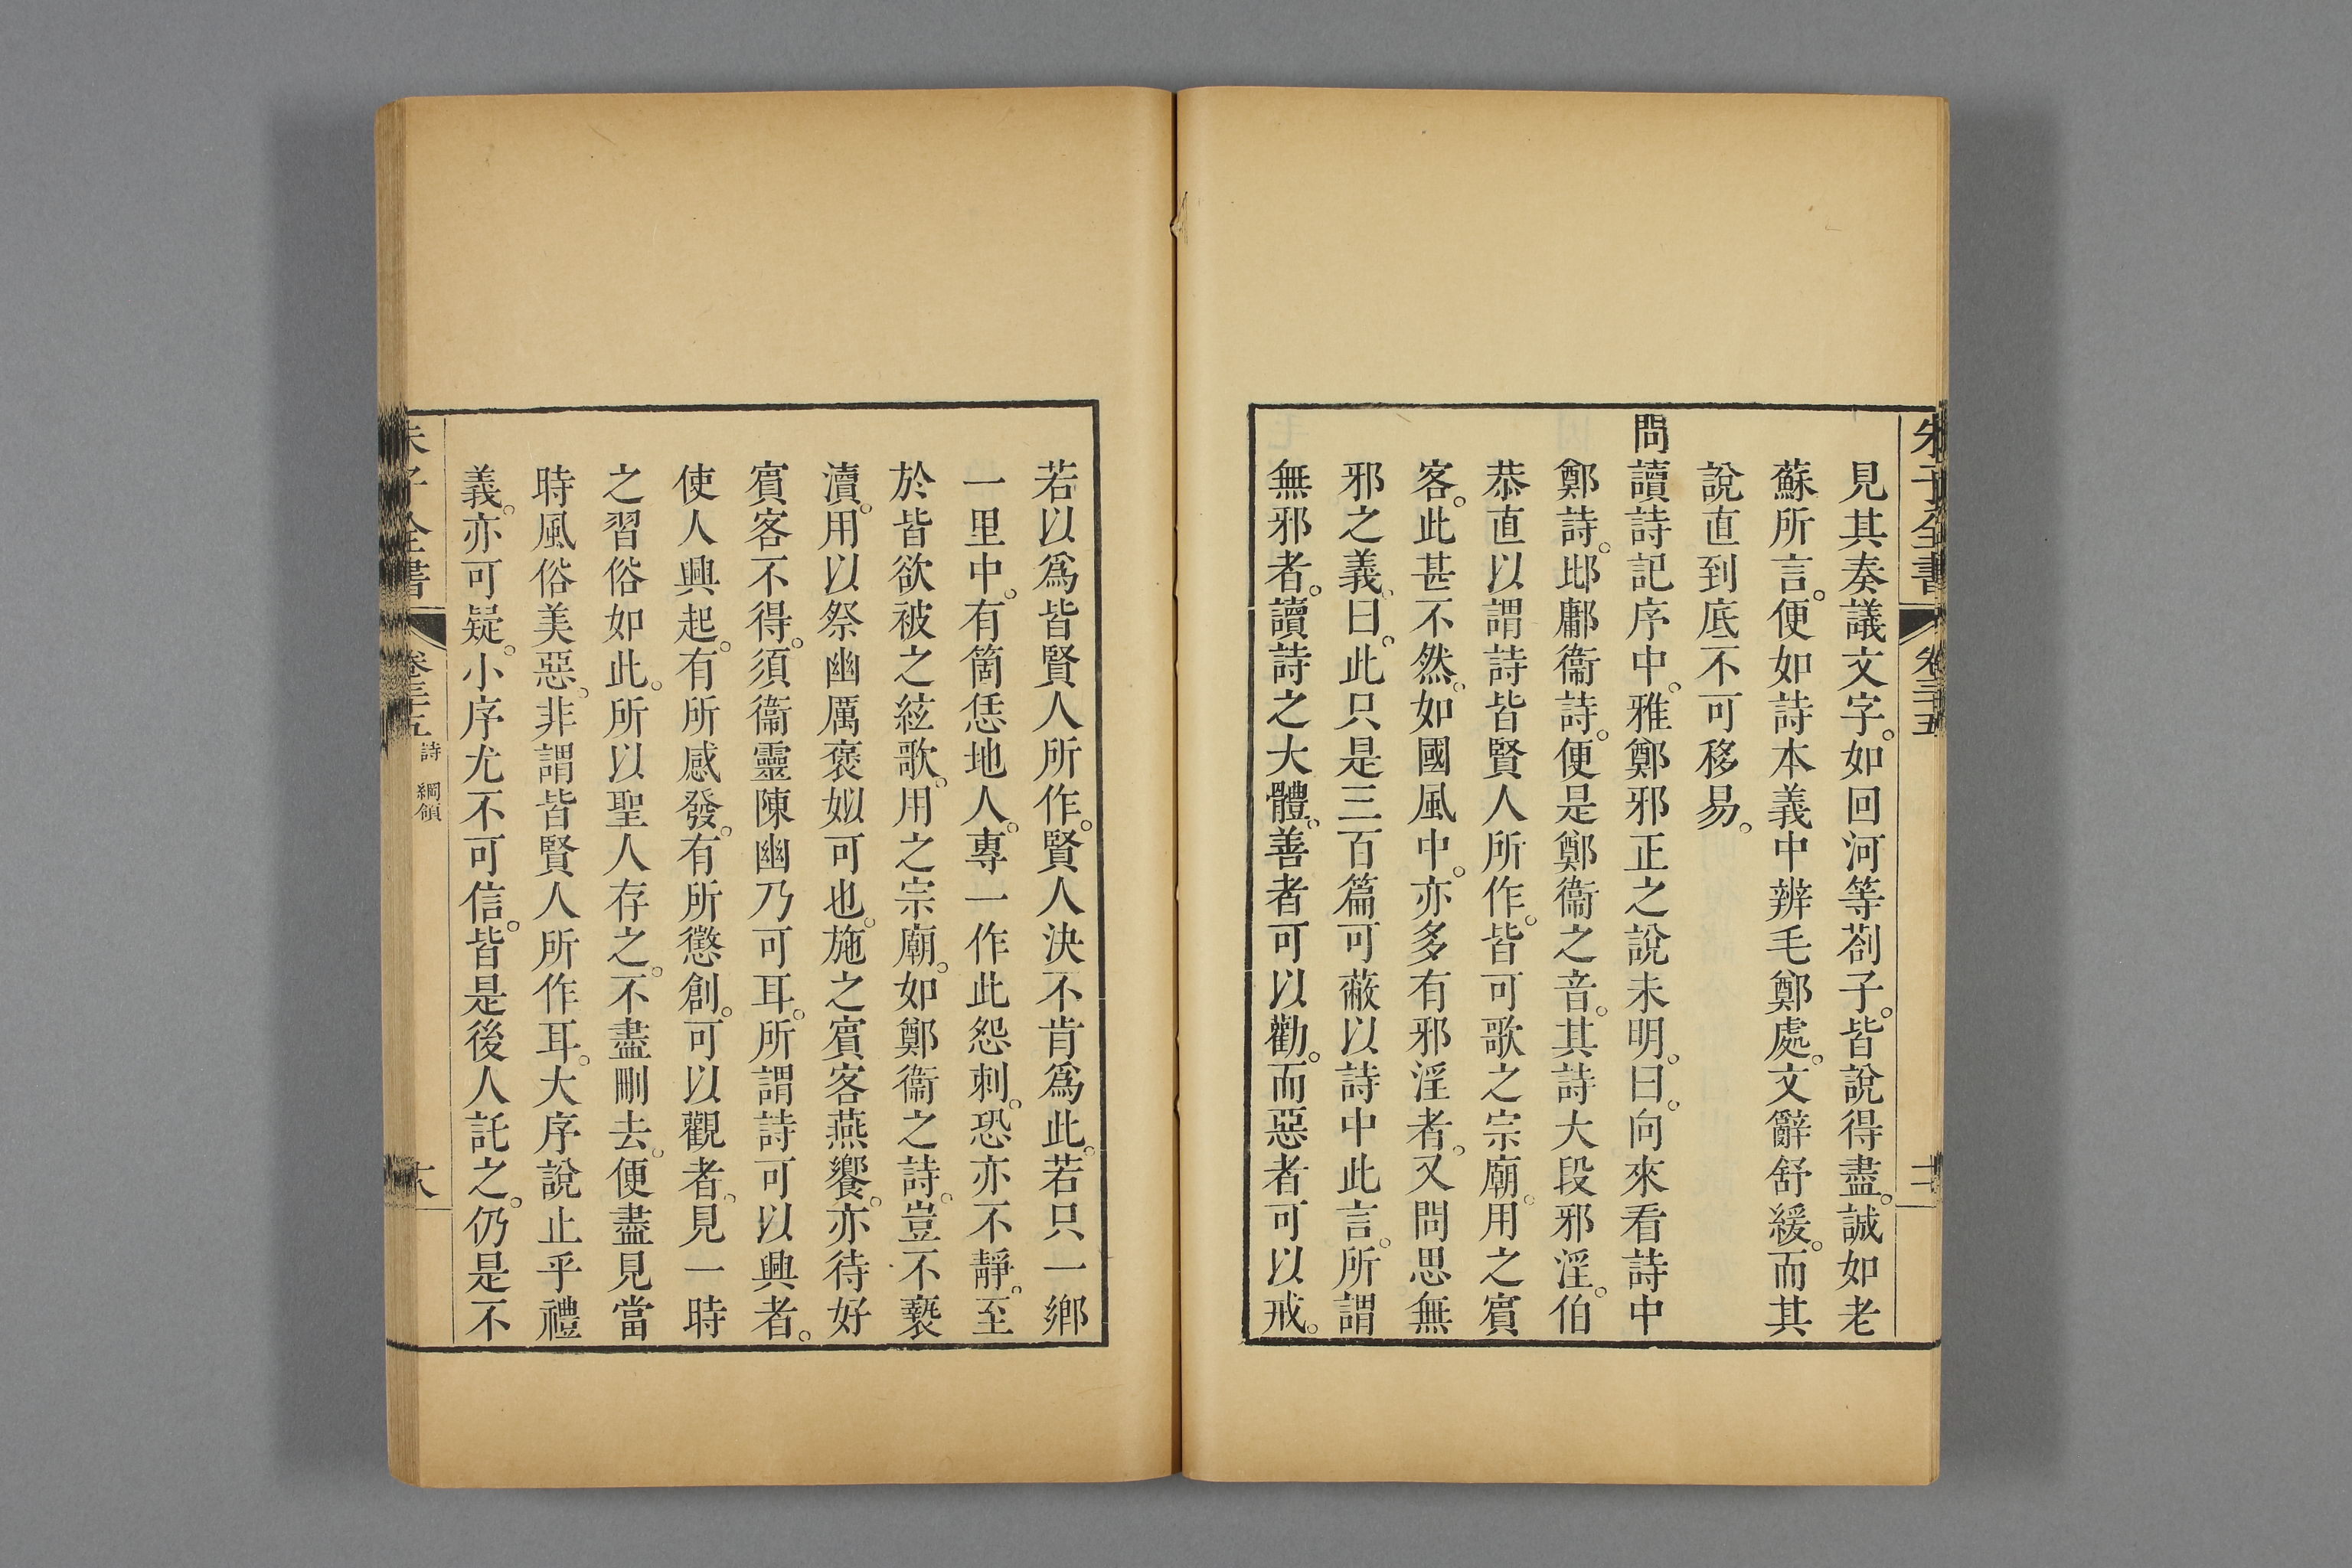 朱子全書 卷三十五
見其奏議文字。如回河等劄子。皆說得盡。誠如老
蘇所言。便如詩本義中辨毛鄭處。文辭舒緩。而其
說直到底不可移易。
問讀詩記序中。雅鄭邪正之說未明。曰。向來看詩中
鄭詩。邶鄘衞詩。便是鄭衞之音。其詩大段邪淫。伯
恭直以謂詩皆賢人所作。皆可歌之宗廟。用之賓
客。此甚不然。如國風中。亦多有邪淫者。又問思無
邪之義。曰。此只是三百篇可蔽以詩中此言。所謂
無邪者。讀詩之大體。善者可以勸。而惡者可以戒。
若以爲皆賢人所作。賢人決不肯爲此。若只一鄉
一里中。有箇恁地人。專一作此怨刺。恐亦不靜。至
於皆欲被之絃歌。用之宗廟。如鄭衞之詩。豈不褻
瀆。用以祭幽厲褒姒可也。施之賓客燕饗。亦待好
賓客不得。須衞靈陳幽乃可耳。所謂詩可以興者。
使人興起。有所感發。有所懲創。可以觀者。見一時
之習俗如此。所以聖人存之。不盡刪去。便盡見當
時風俗美惡。非謂皆賢人所作耳。大序說止乎禮
義。亦可疑。小序尤不可信。皆是後人託之。仍是不
朱子全書 卷三十五 詩 綱領